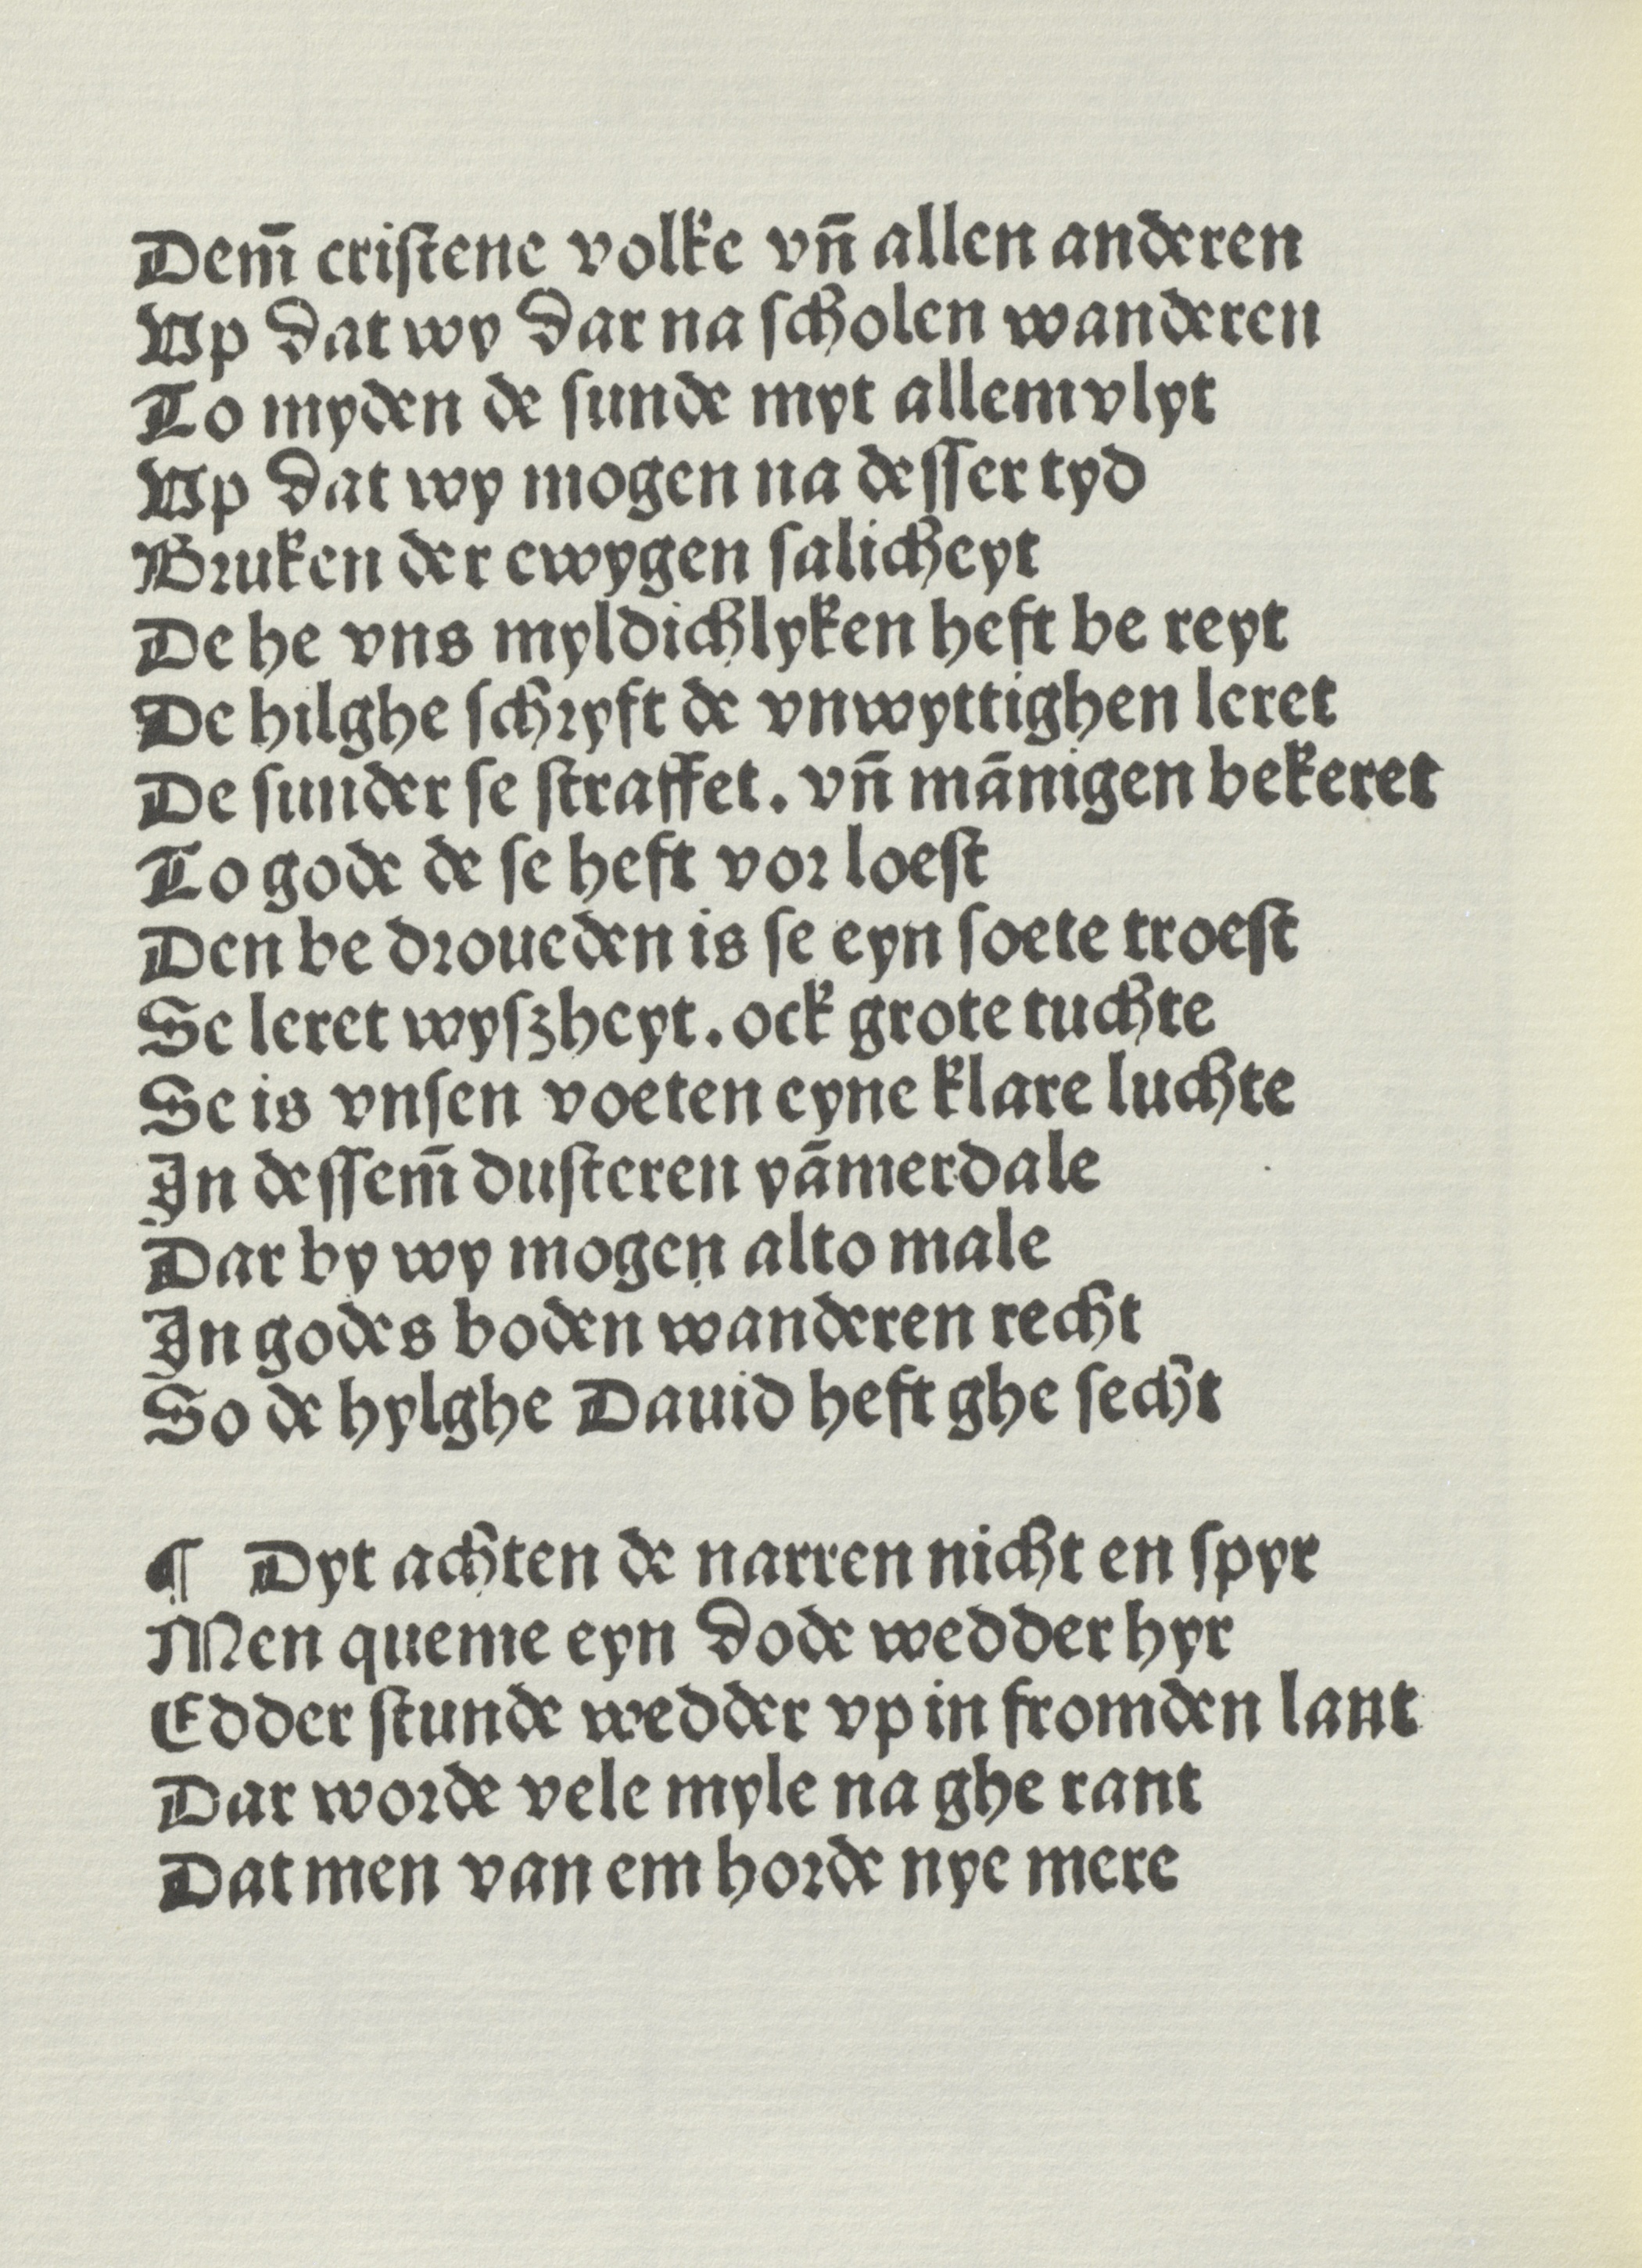 Dem̄ criſtene volke vn̄ allen anderen
Vp dat wy dar na ſcholen wanderen
To myden de ſunde myt allem vlyt
Vp dat wy mogen na deſſer tyd
Bꝛuken der ewygen ſalicheyt
De he vns myldichlyken heft be reyt
De hilghe ſchꝛyft de vnwyttighen leret
De ſunder ſe ſtraffet. vn̄ mānigen bekeret
To gode de ſe heft voꝛ loeſt
Den be dꝛoueden is ſe eyn ſoete troeſt
Se leret wyſzheyt. ock grote tuchte
Se is vnſen voeten eyne klare luchte
In deſſem̄ duſteren yāmerdale
Dar by wy mogen alto male
In godes boden wanderen recht
So de hylghe Dauid heft ghe ſecht
¶ Dyt achten de narren nicht en ſpyr
Men queme eyn dode wedder hyr
Edder ſtunde wedder vp in fromden lant
Dar woꝛde vele myle na ghe rant
Dat men van em hoꝛde nye mere